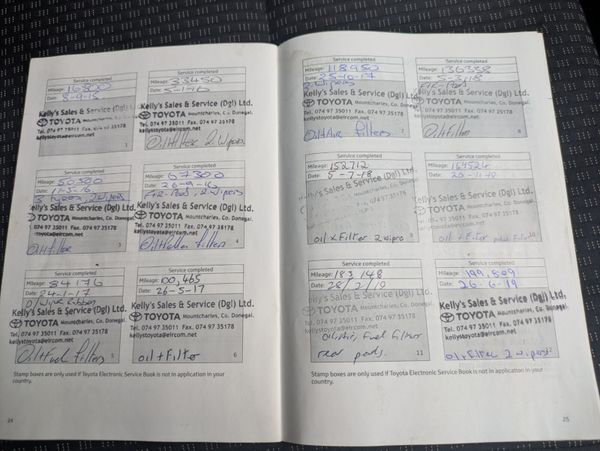 Service completed
Mileage: 16800
Date: 8-9-15
Kelly's Sales & Service (Dgl)
TOYOTA Mountcharles, Co. Donegal.
Tel. 074 97 35011 Fax. 074 97 35178
kellystoyota@eircom.net
1
Service completed
Mileage: 33450
Date: 5-1-16
Kelly's Sales & Service (Dgl) Ltd.
TOYOTA Mountcharles, Co. Donegal.
Tel. 074 97 35011 Fax. 074 97 35178
kellystoyota@eircom.net
Oil+filter 2 wipers
Service completed
Mileage:
Date: 11-5-16
2 wipers
Kelly's Sales & Service (Dgl) Ltd.
TOYOTA Mountcharles, Co. Donegal.
Tel. 074 97 35011 Fax. 074 97 35178
kellystoyota@eircom.net
Oil+filter
3
Service completed
Mileage: 67300
Date: 26-9-16
2 wipers
Kelly's Sales & Service (Dgl) Ltd.
TOYOTA Mountcharles, Co. Donegal.
Tel. 074 97 35011 Fax. 074 97 35178
kellystoyota@eircom.net
filters
4
Service completed
Mileage: 84176
Date: 24-1-17
Kelly's Sales & Service (Dgl) Ltd.
TOYOTA Mountcharles, Co. Donegal.
Tel. 074 97 35011 Fax. 074 97 35178
kellystoyota@eircom.net
Oil+Fuel Filters
5
Service completed
Mileage: 100,465
Date: 26-5-17
Kelly's Sales & Service (Dgl) Ltd.
TOYOTA Mountcharles, Co. Donegal.
Tel. 074 97 35011 Fax. 074 97 35178
kellystoyota@eircom.net
oil+Filter
6
Stamp boxes are only used if Toyota Electronic Service Book is not in application in your
country.
24
Service completed
Mileage: 118950
Date: 25-10-17
2 wipers
Kelly's Sales & Service (Dgl) Ltd.
TOYOTA Mountcharles, Co. Donegal.
Tel. 074 97 35011 Fax. 074 97 35178
kellystoyota@eircom.net
Oil+Air filters
7
Service completed
Mileage: 136338
Date: 5-3-18
Kelly's Sales & Service (Dgl) Ltd.
TOYOTA Mountcharles, Co. Donegal.
Tel. 074 97 35011 Fax. 074 97 35178
kellystoyota@eircom.net
Oil+filter
8
Service completed
Mileage: 152712
Date: 5-7-18
Kelly's Sales & Service (Dgl) Ltd.
TOYOTA Mountcharles, Co. Donegal.
Tel. 074 97 35011 Fax. 074 97 35178
kellystoyota@eircom.net
oil x Filter 2 wipers
Service completed
Mileage: 164524
Date:
Kelly's Sales & Service (Dgl) Ltd.
TOYOTA Mountcharles, Co. Donegal.
Tel. 074 97 35011 Fax. 074 97 35178
kellystoyota@eircom.net
oil x Filter
10
Service completed
Mileage: 183,148
Date: 28/2/19
Kelly's Sales & Service (Dgl) Ltd.
TOYOTA Mountcharles, Co. Donegal.
Tel. 074 97 35011 Fax. 074 97 35178
kellystoyota@eircom.net
oil, Air, Fuel Filter
rear pads.
11
Service completed
Mileage: 199,809
Date: 26-6-19
Kelly's Sales & Service (Dgl) Ltd.
TOYOTA Mountcharles, Co. Donegal.
Tel. 074 97 35011 Fax. 074 97 35178
kellystoyota@eircom.net
oil+Filter 2 wipers
Stamp boxes are only used if Toyota Electronic Service Book is not in application in your
country.
25